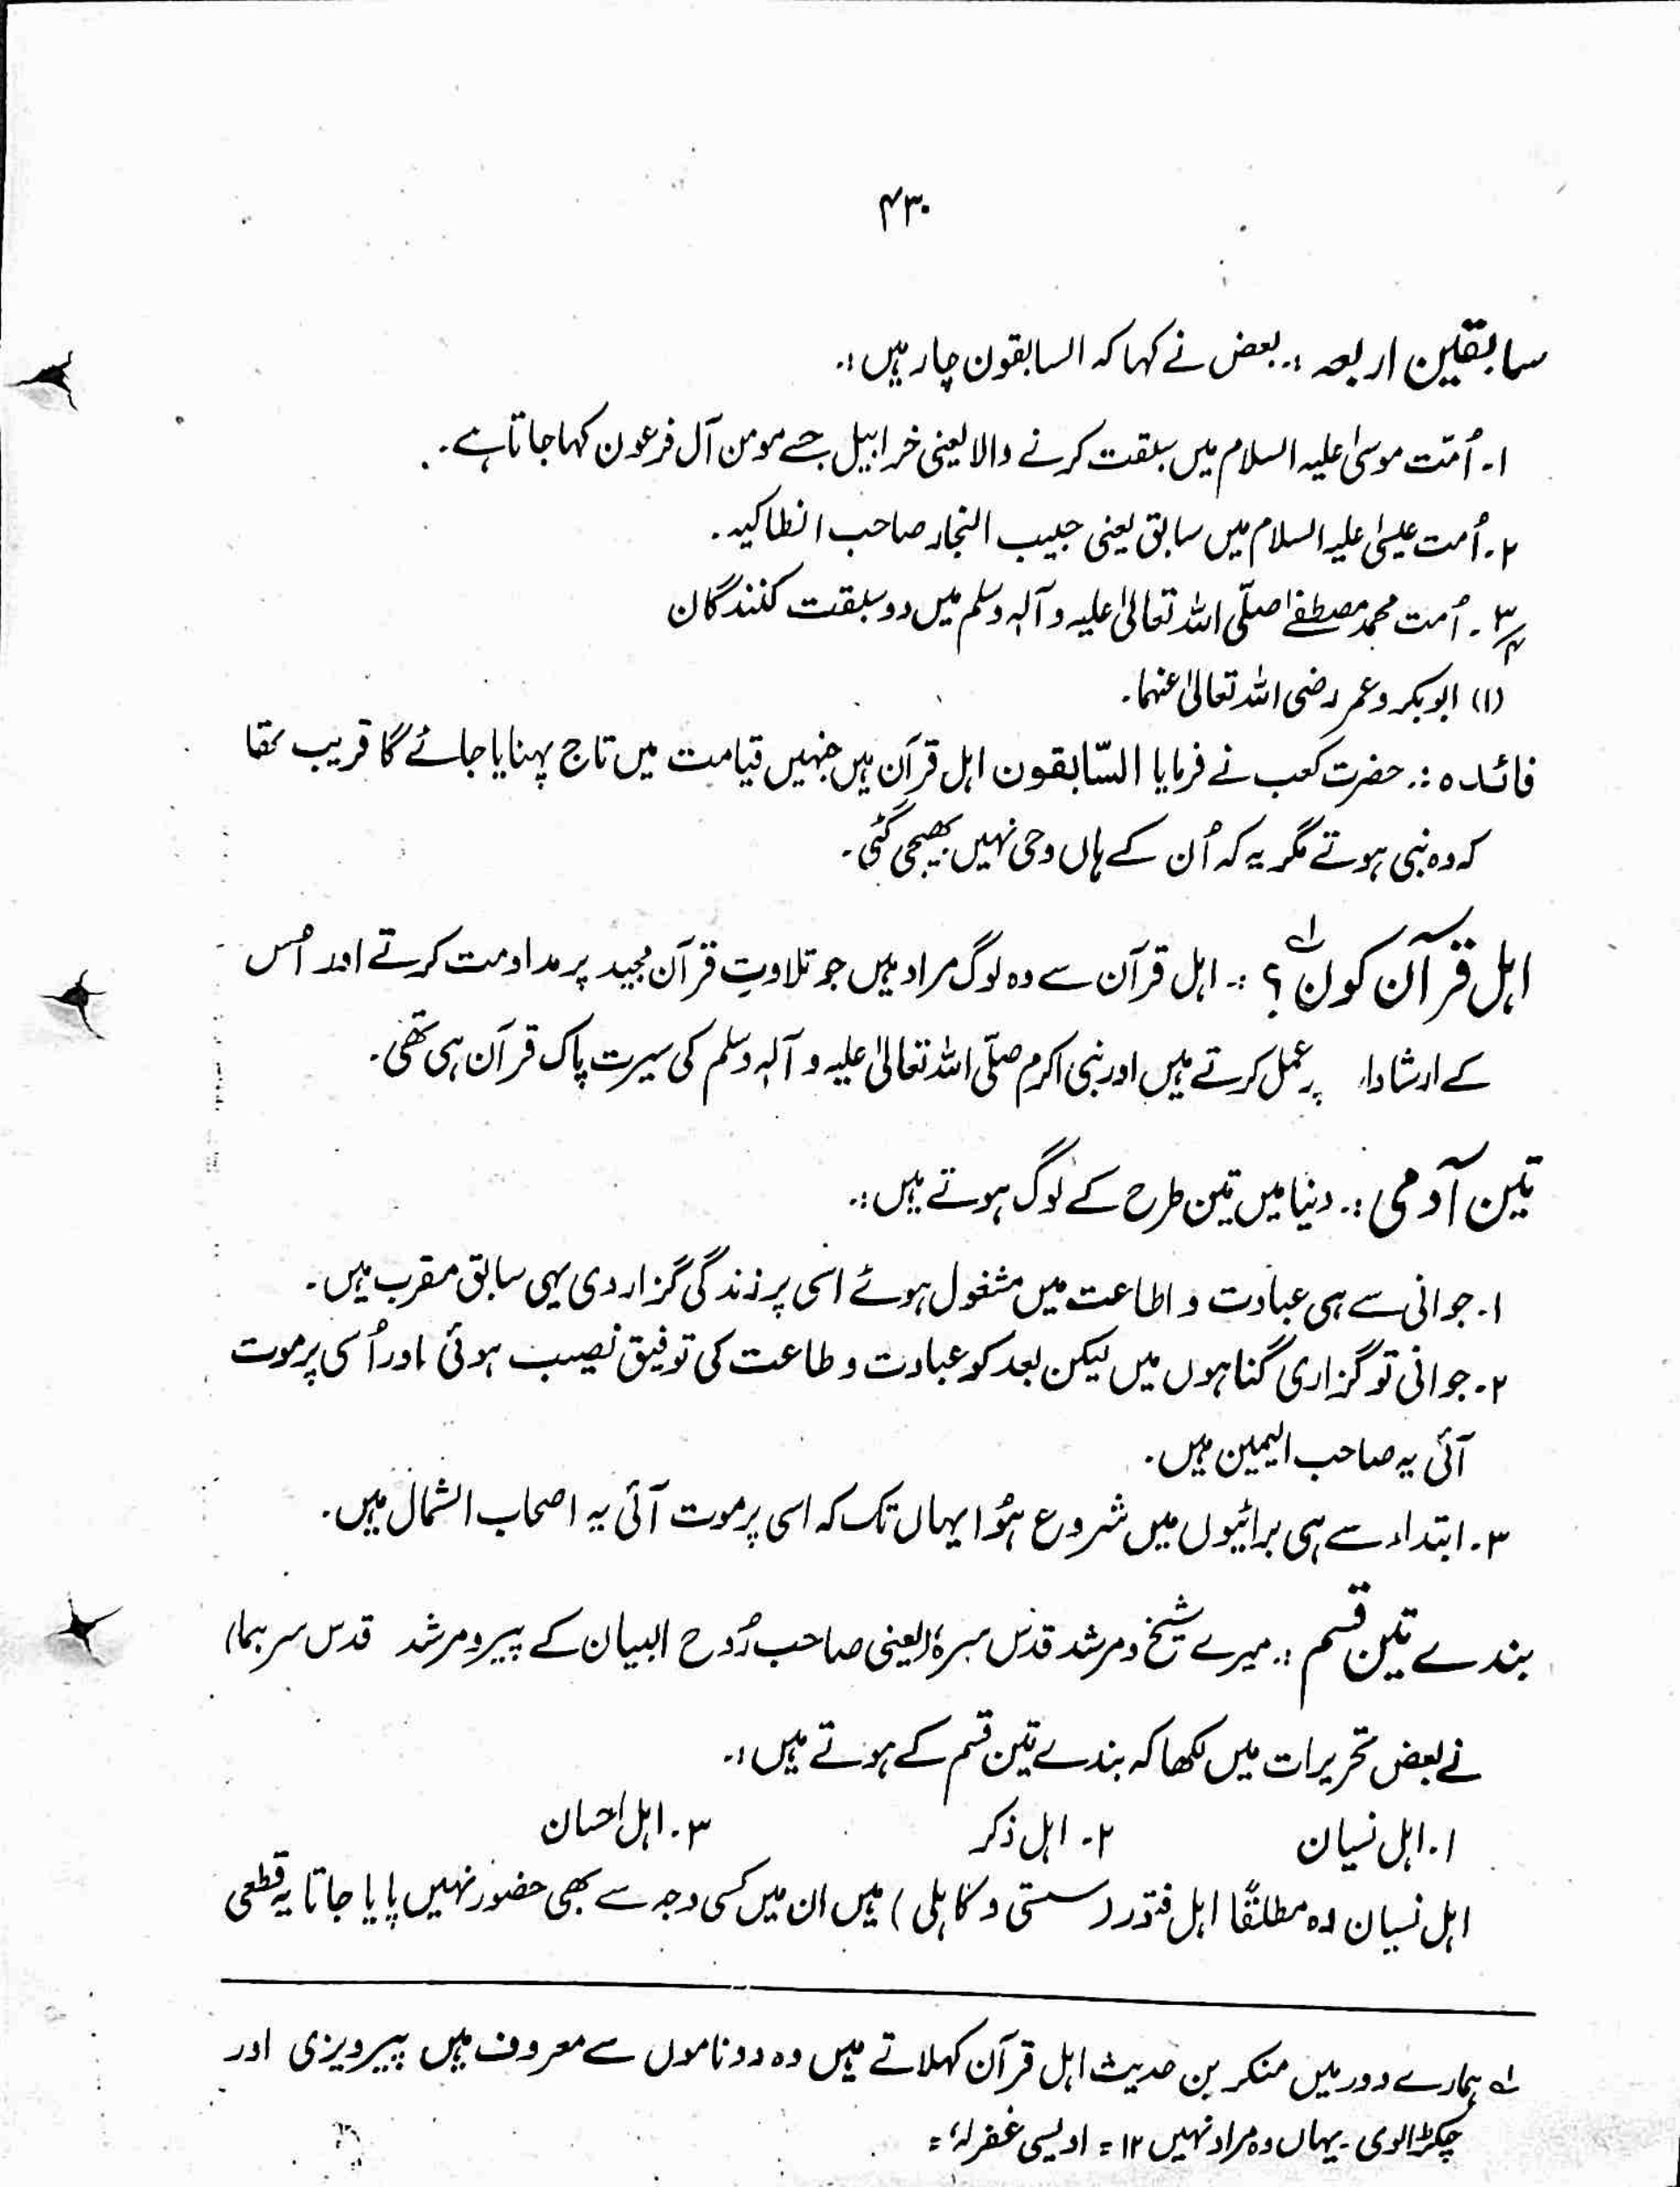 ۴۳۰
سابقین اربعہ :۔ بعض نے کہا کہ السابقون چار ہیں :۔
۱۔ اُمّت موسیٰ علیہ السلام میں سبقت کرنے والا یعنی خرابیل جسے مومن آل فرعون کہا جاتا ہے۔
۲۔ اُمت عیسیٰ علیہ السلام میں سابق یعنی حبیب النجار صاحب انطاکیہ۔
۳/۴۔ اُمت محمد مصطفےٰ صلّی اللہ تعالیٰ علیہ وآلہٖ وسلم میں دو سبقت کنندگان
(۱) ابوبکر و عمر رضی اللہ تعالیٰ عنہما۔
فائدہ :۔ حضرت کعب نے فرمایا السّابقون اہل قرآن ہیں جنہیں قیامت میں تاج پہنایا جائے گا قریب تھا
کہ وہ نبی ہوتے مگر یہ کہ اُن کے ہاں وحی نہیں بھیجی گئی۔
اہل قرآن کون؟ لہ :۔ اہل قرآن سے وہ لوگ مراد ہیں جو تلاوتِ قرآن مجید پر مداومت کرتے اور اُس
کے ارشادا پر عمل کرتے ہیں اور نبی اکرم صلّی اللہ تعالیٰ علیہ وآلہٖ وسلم کی سیرت پاک قرآن ہی تھی۔
تین آدمی :۔ دنیا میں تین طرح کے لوگ ہوتے ہیں :۔
۱۔ جوانی سے ہی عبادت و اطاعت میں مشغول ہوئے اسی پر زندگی گزار دی یہی سابق مقرب ہیں۔
۲۔ جوانی تو گزاری گناہوں میں لیکن بعد کو عبادت و طاعت کی توفیق نصیب ہوئی اور اُسی پر موت
آئی یہ صاحب الیمین ہیں۔
۳۔ ابتداء سے ہی برائیوں میں شروع ہُوا یہاں تک کہ اسی پر موت آئی یہ اصحاب الشمال ہیں۔
بندے تین قسم :۔ میرے شیخ و مرشد قدس سرہٗ (یعنی صاحب رُوح البیان کے پیر و مرشد قدس سرہما)
نے بعض تحریرات میں لکھا کہ بندے تین قسم کے ہوتے ہیں :۔
۱۔ اہل نسیان ۲۔ اہل ذکر ۳۔ اہل احسان
اہل نسیان وہ مطلقًا اہل فتور (سستی و کاہلی) ہیں ان میں کسی وجہ سے بھی حضور نہیں پایا جاتا یہ قطعی
لہ ہمارے دور میں منکرین حدیث اہل قرآن کہلاتے ہیں وہ دو ناموں سے معروف ہیں پیرویزی اور
چکڑالوی۔ یہاں وہ مراد نہیں ۱۲ = اویسی غفرلہٗ =